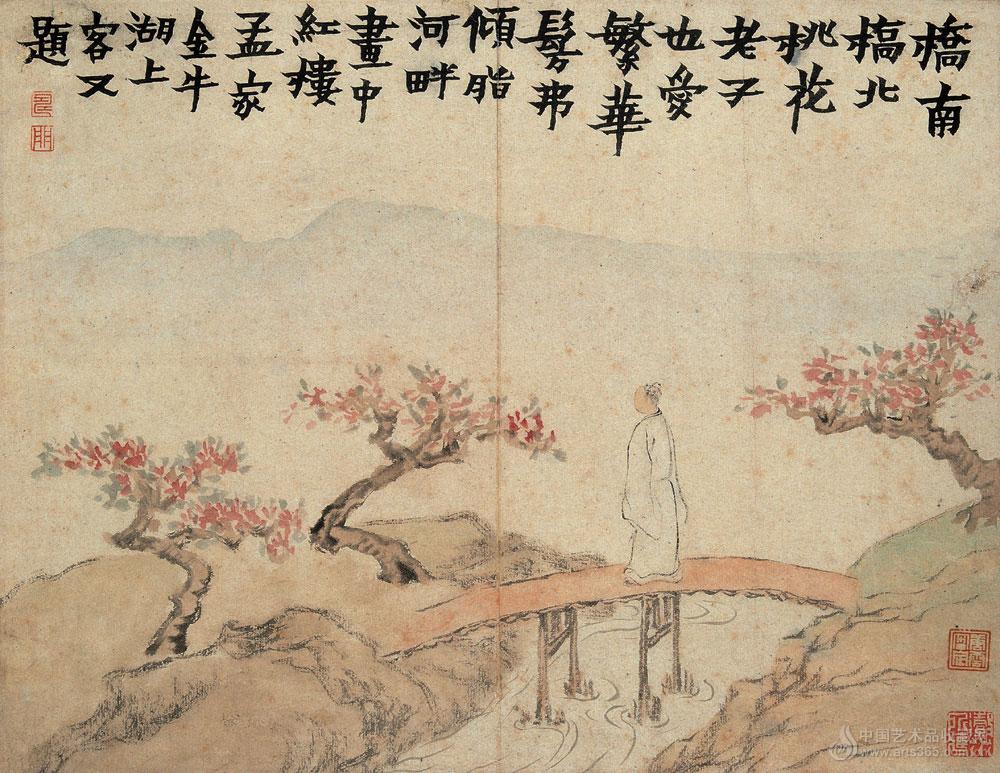 橋南
槁北
桃花
老子
也愛
繁華
髣弗
傾脂
河畔
畫中
紅樓
孟家
金牛
湖上
客又
題
中国艺术品收藏
www.arts365.com